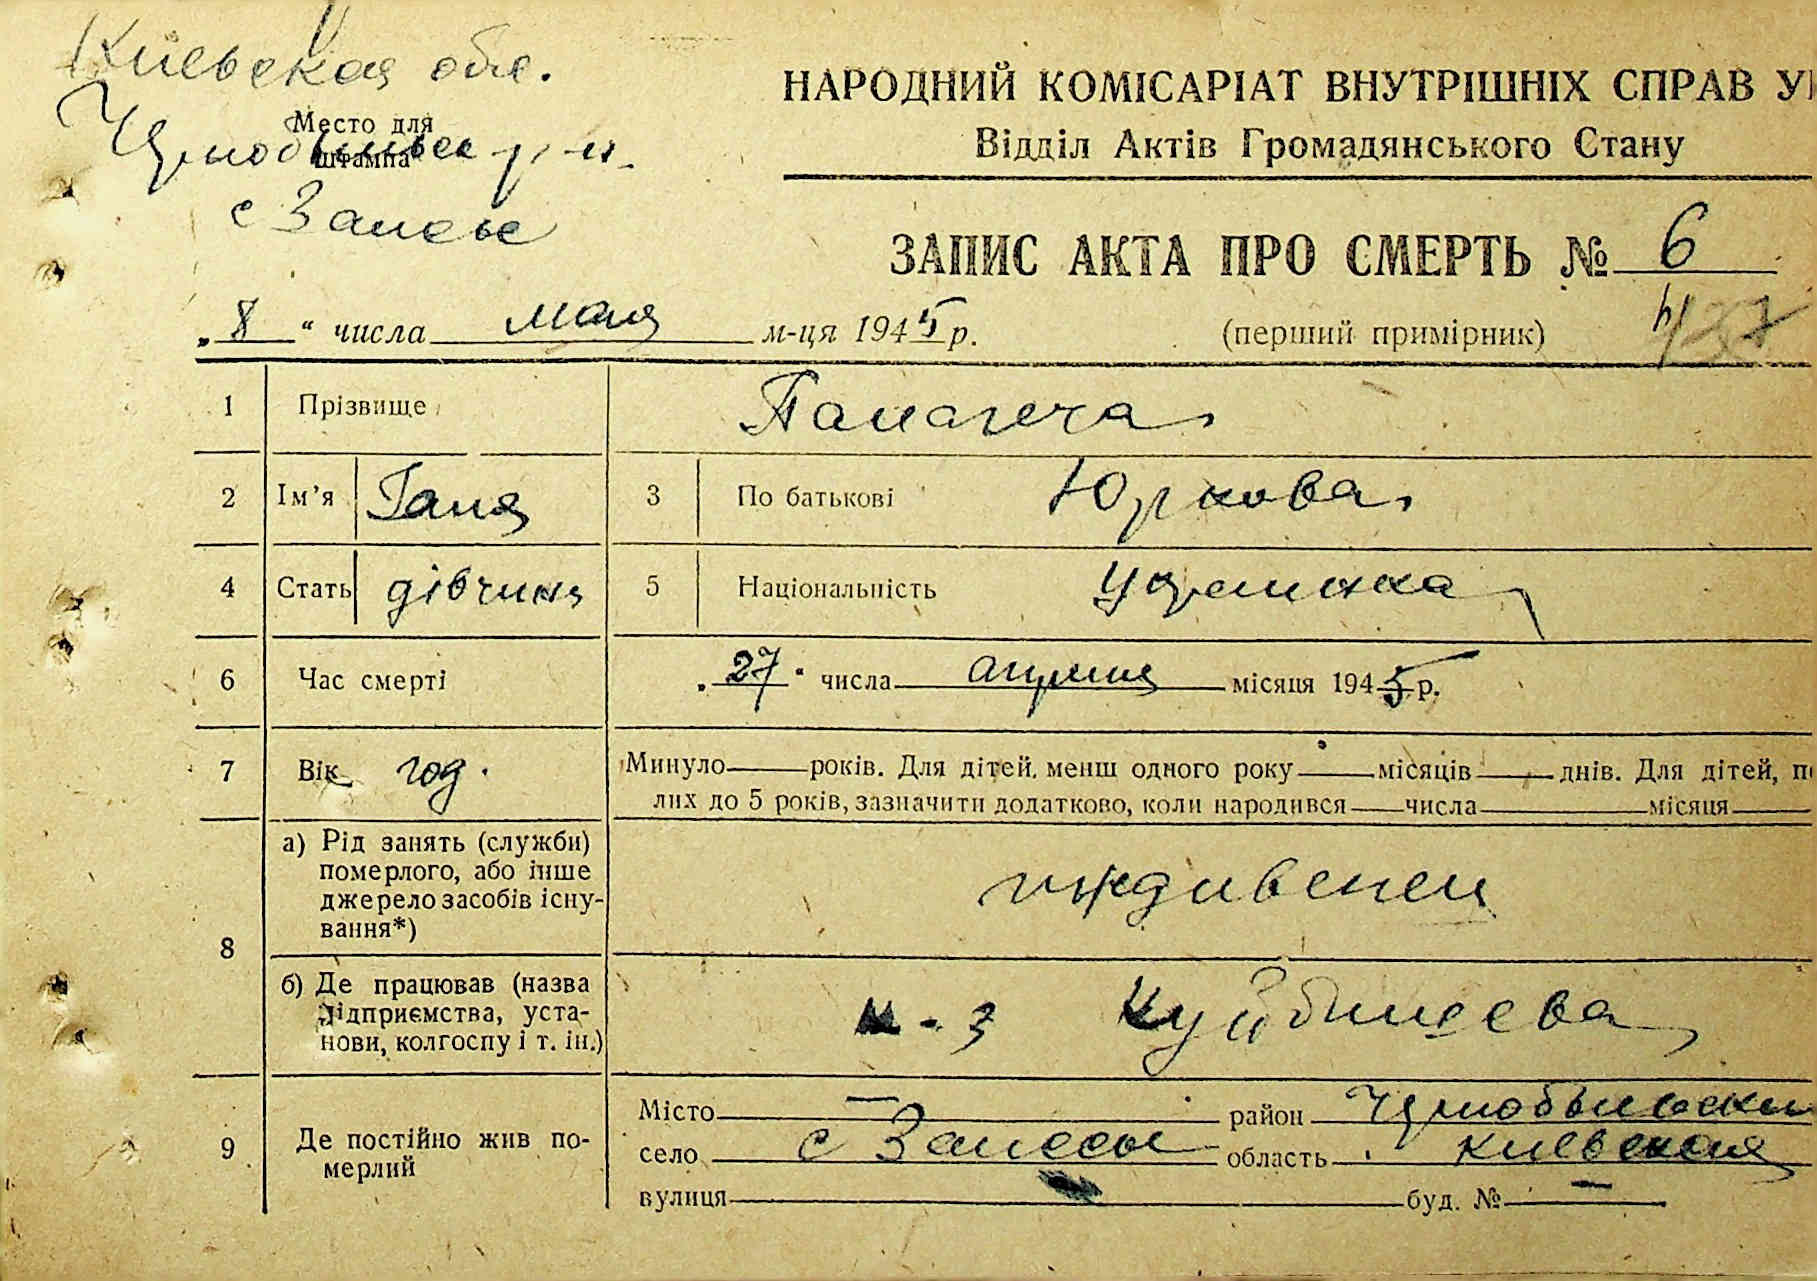 Киевская обл.
Место для
штампа
Чернобыльск р-н.
с Залесье
НАРОДНИЙ КОМІСАРІАТ ВНУТРІШНІХ СПРАВ
Відділ Актів Громадянського Стану
ЗАПИС АКТА ПРО СМЕРТЬ № 6
„8“ числа мая м-ця 1945 р. (перший примірник)
1 Прізвище
2 Ім'я Ганя 3 По батькові Юркова
4 Стать дівчина 5 Національність Украинка
6 Час смерті „27“ числа апреля місяця 1945 р.
7 Вік год. Минуло років. Для дітей, менш одного року місяців днів. Для дітей,
лих до 5 років, зазначити додатково, коли народився числа місяця
8 а) Рід занять (служби)
померлого, або інше
джерело засобів існу-
вання*) иждивенец
б) Де працював (назва
підприємства, уста-
нови, колгоспу і т. ін.) к-з Куйбишева
9 Де постійно жив по-
мерлий
Місто — район Чернобыльски
село с Залесье область Киевская
вулиця буд. № —